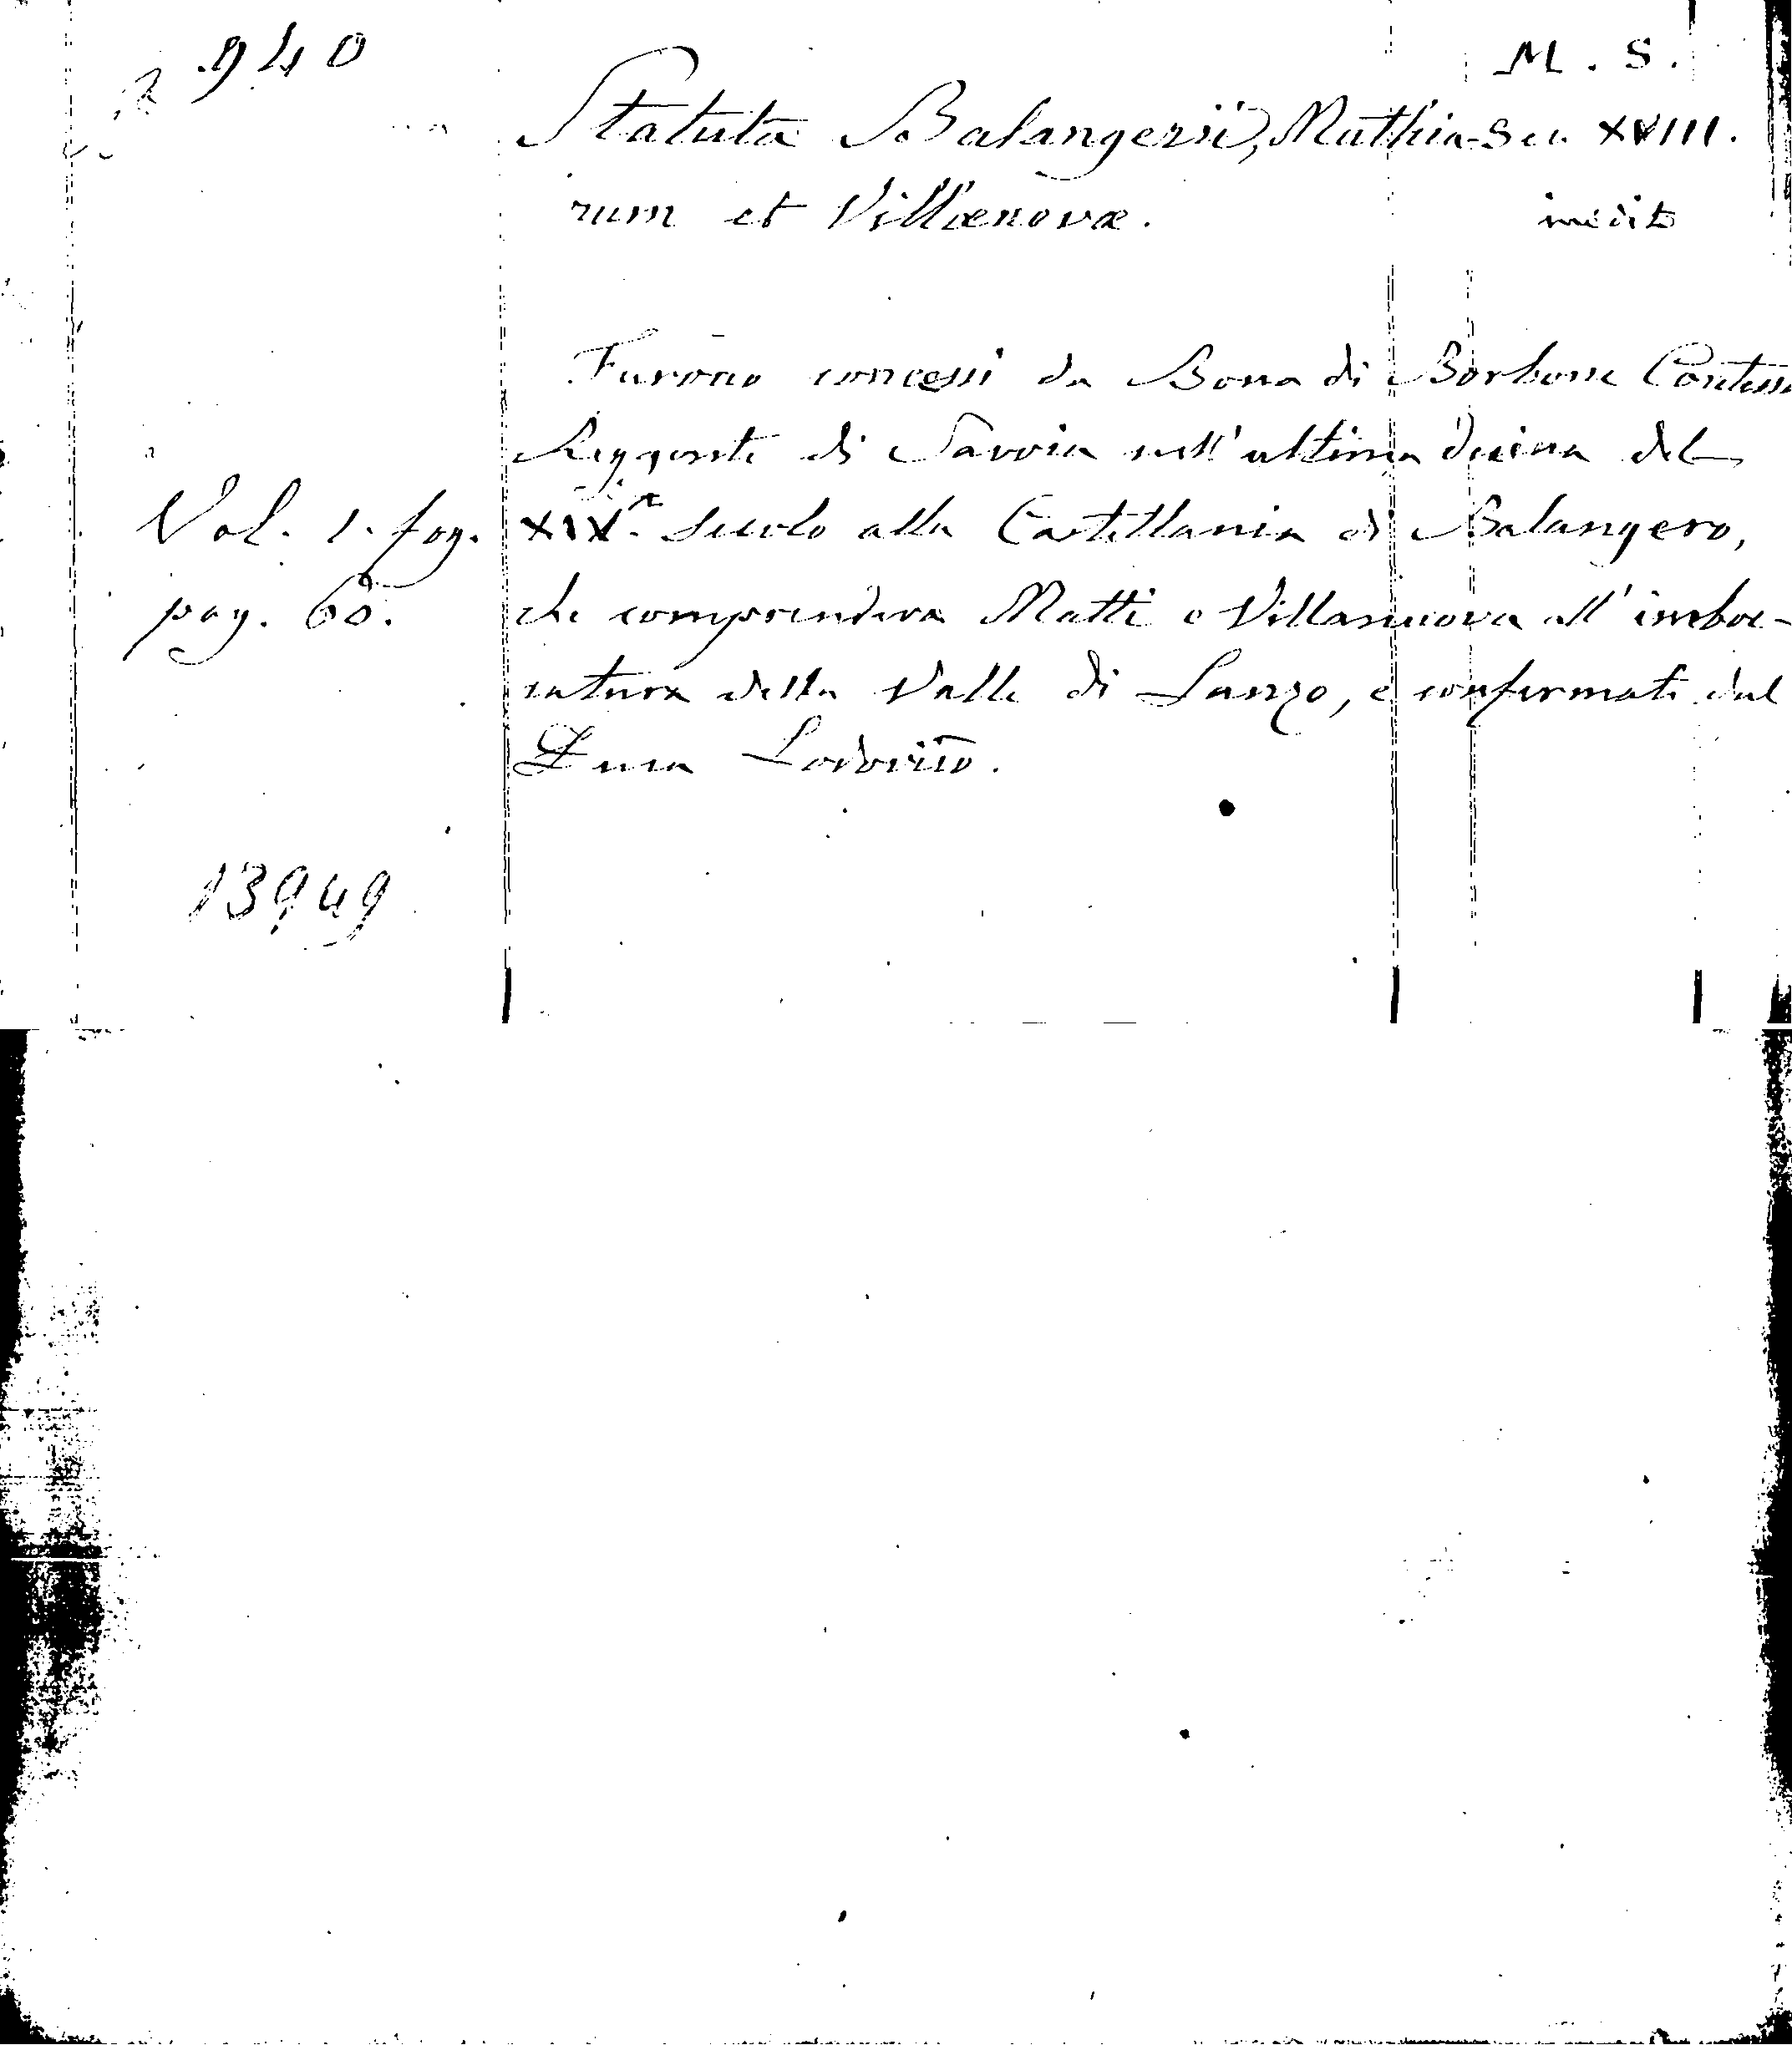 940
M. S.
Statuta Balangerii, Mathia- Sec. XVIII.
rum et Villænovæ.
inedito
Furono concessi da Bona di Borbone Contessa
Reggente di Savoia nell'ultima decina del
Vol. 1. fog.
XIX.º Secolo alla Castellania di Balangero,
pag. 60.
che comprendeva Matti e Villanuova all'imboc-
catura della Valle di Lanzo, e confermati dal
Duca Lodovico.
13949